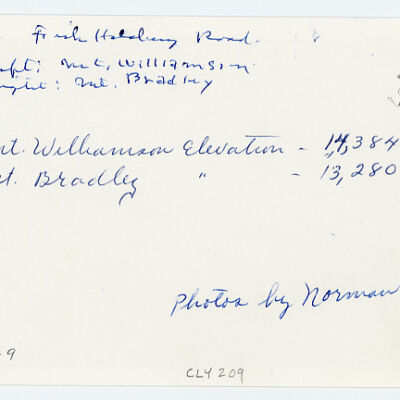 Fish Hatchery Road.
Left: Mt. Williamson
Right: Mt. Bradley
Mt. Williamson Elevation - 14,384
Mt. Bradley " - 13,280
Photos by Norman
9
CLY 209